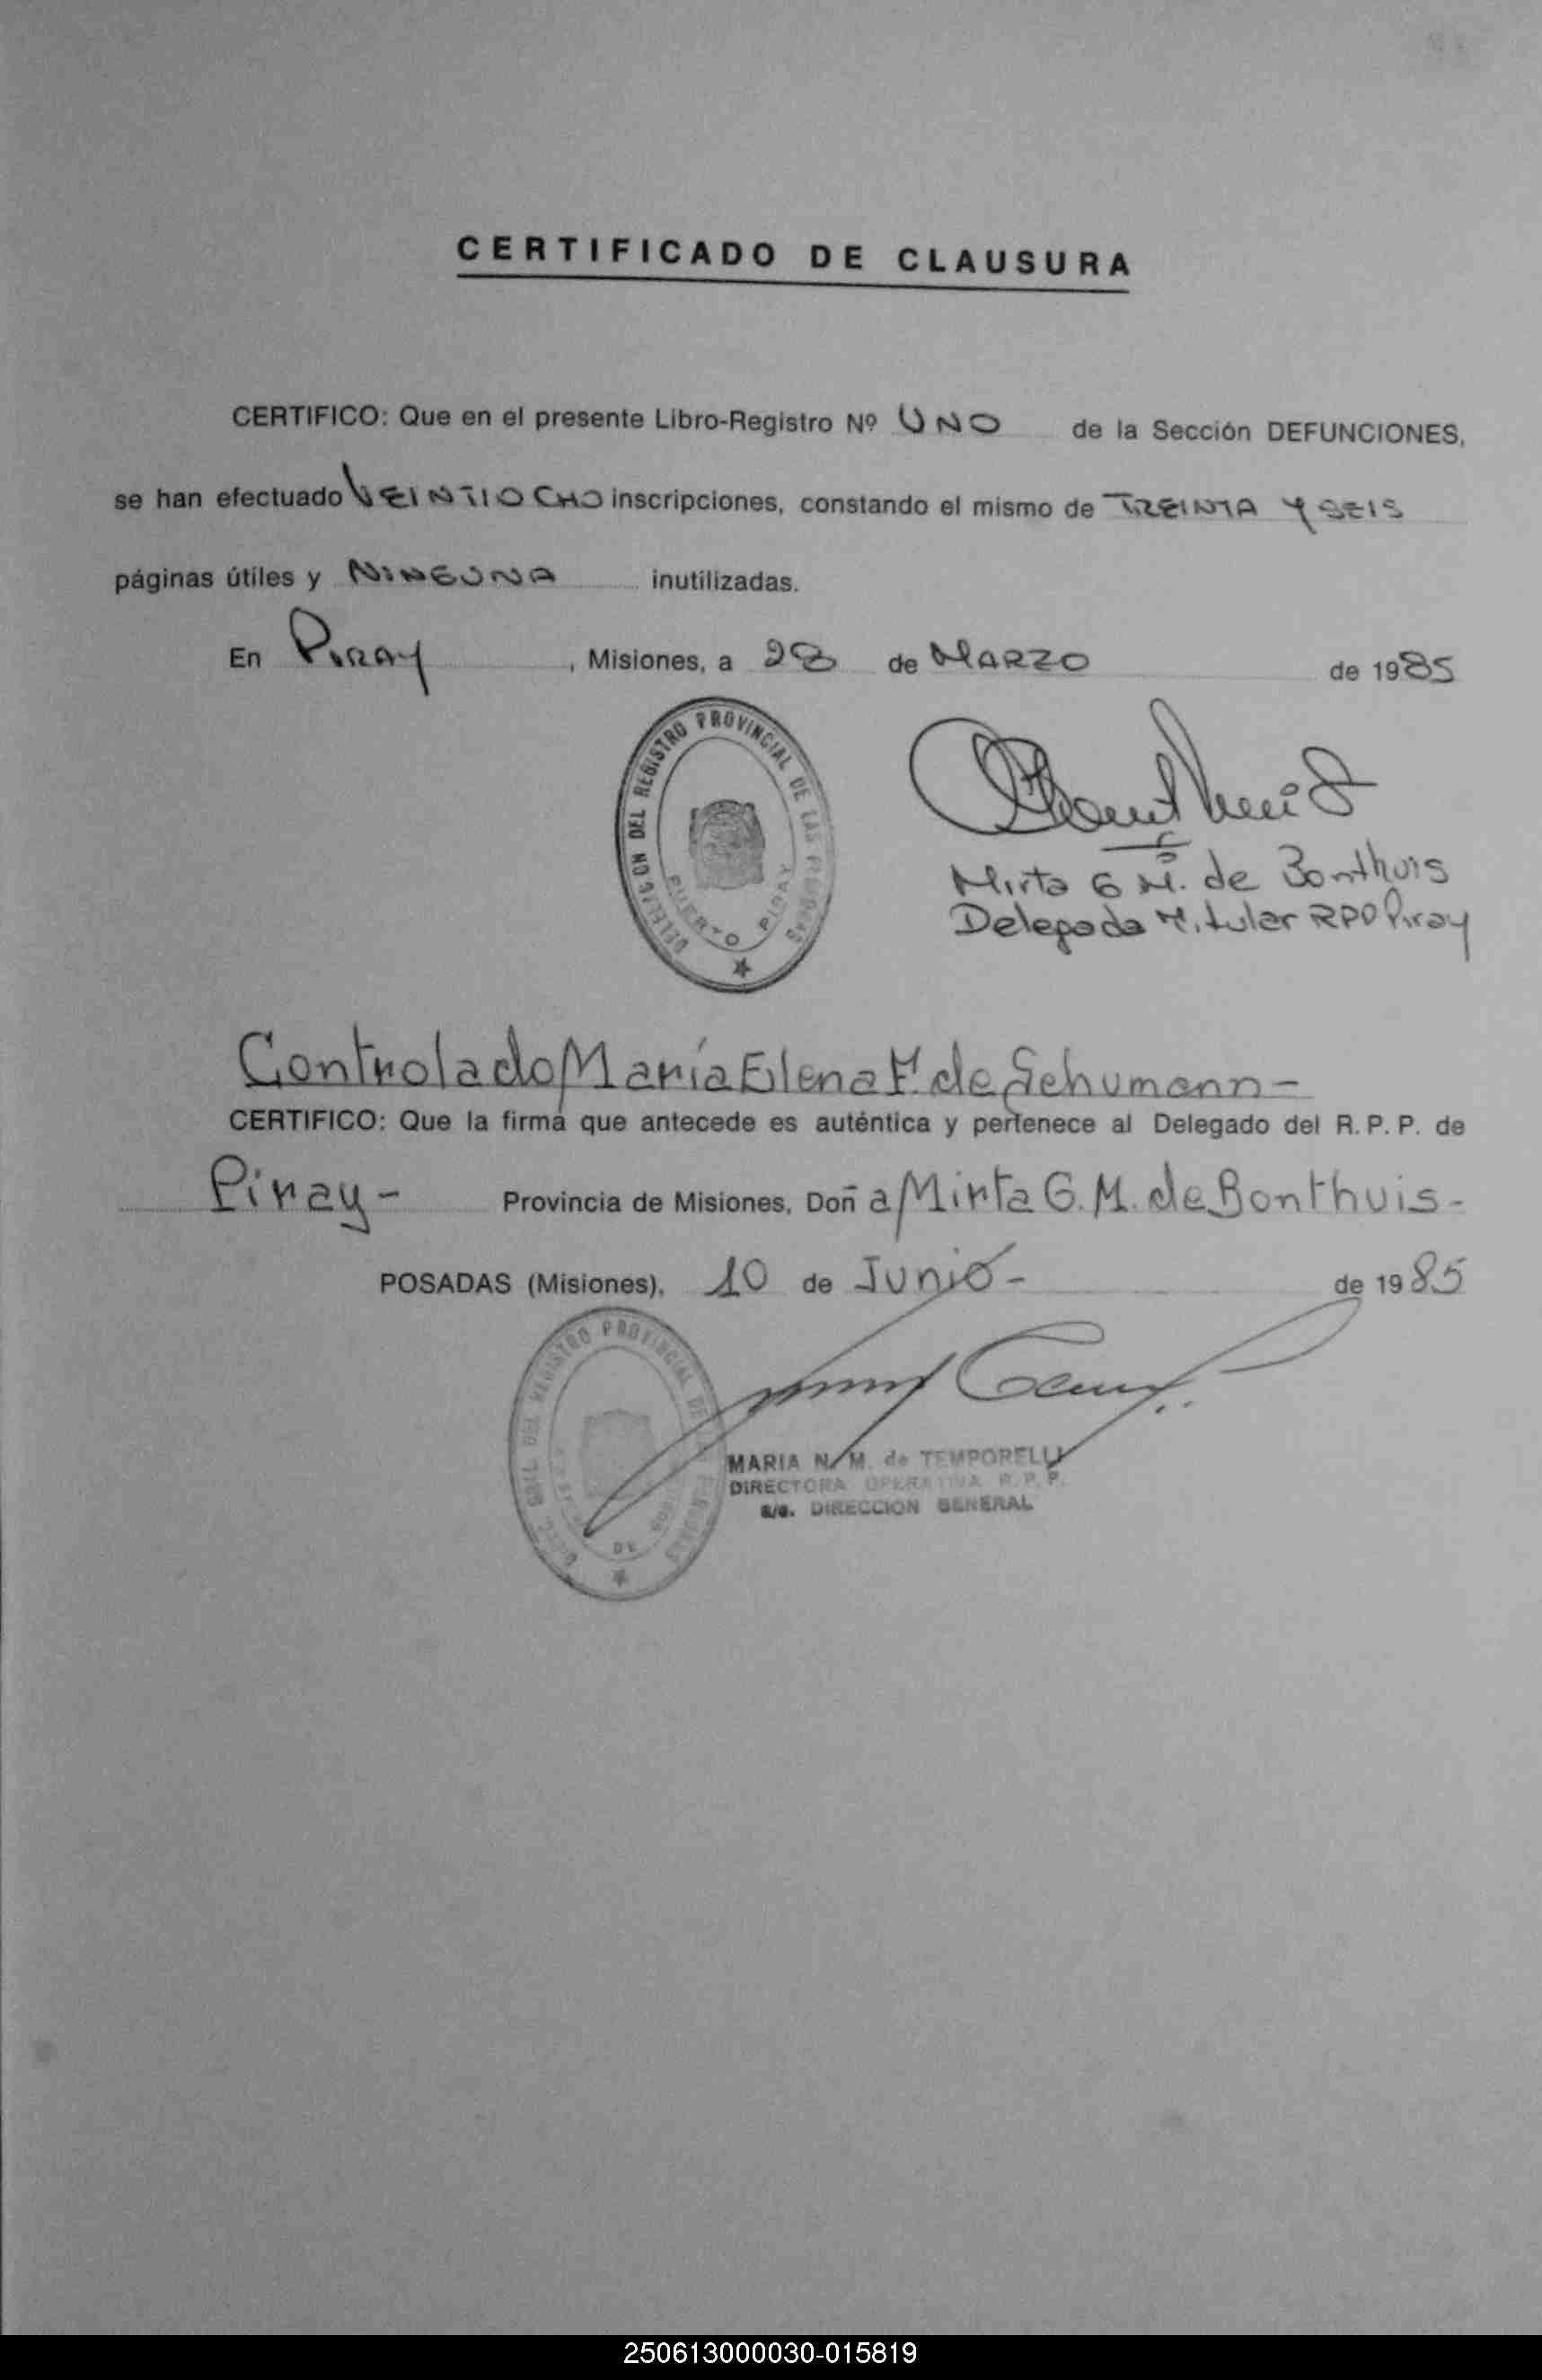 CERTIFICADO DE CLAUSURA
CERTIFICO: Que en el presente Libro-Registro Nº UNO de la Sección DEFUNCIONES,
se han efectuado VEINTIOCHO inscripciones, constando el mismo de TREINTA Y SEIS
páginas útiles y NINGUNA inutilizadas.
En PIRAY, Misiones, a 28 de MARZO de 1985
DELEGACION DEL REGISTRO PROVINCIAL DE LAS PERSONAS
PUERTO PIRAY
Mirta G M. de Bonthuis
Delegada Titular RPP Piray
Controlado María Elena F. de Schumann-
CERTIFICO: Que la firma que antecede es auténtica y pertenece al Delegado del R. P. P. de
Piray- Provincia de Misiones, Doña Mirta G. M. de Bonthuis-
POSADAS (Misiones), 10 de Junio- de 1985
GRAL DEL REGISTRO PROVINCIAL DE
MARIA N. M. de TEMPORELLI
DIRECTORA OPERATIVA R. P. P.
a/c. DIRECCION GENERAL
250613000030-015819